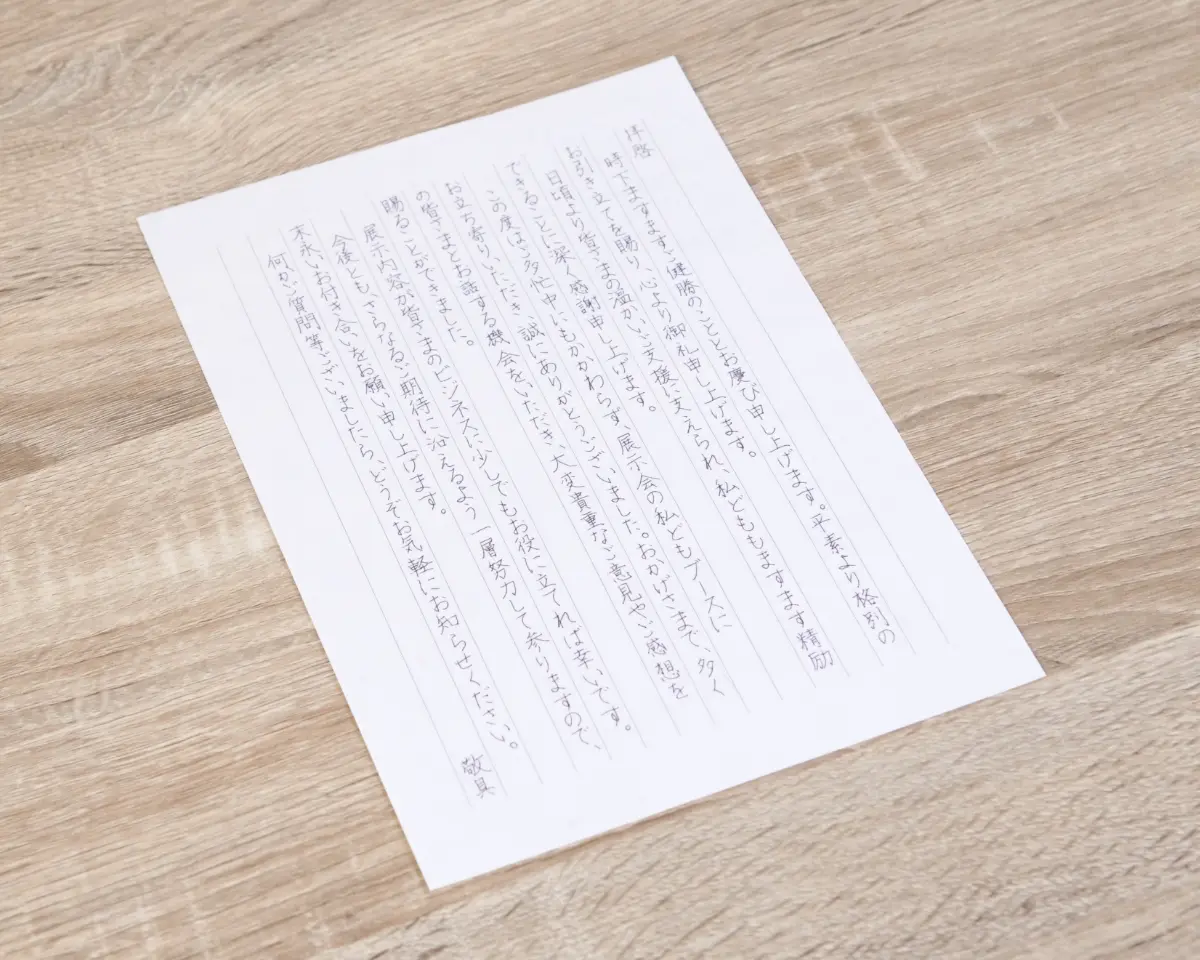 拝啓
時下ますますご健勝のこととお慶び申し上げます。平素より格別の
お引き立てを賜り、心より御礼申し上げます。
日頃より皆さまの温かいご支援に支えられ、私どももますます精励
できることに深く感謝申し上げます。
この度はご多忙中にもかかわらず、展示会の私どもブースに
お立ち寄りいただき、誠にありがとうございました。おかげさまで、多く
の皆さまとお話する機会をいただき、大変貴重なご意見やご感想を
賜ることができました。
展示内容が皆さまのビジネスに少しでもお役に立てれば幸いです。
今後とも、さらなるご期待に沿えるよう一層努力して参りますので、
末永いお付き合いをお願い申し上げます。
何かご質問等ございましたら、どうぞお気軽にお知らせください。
敬具